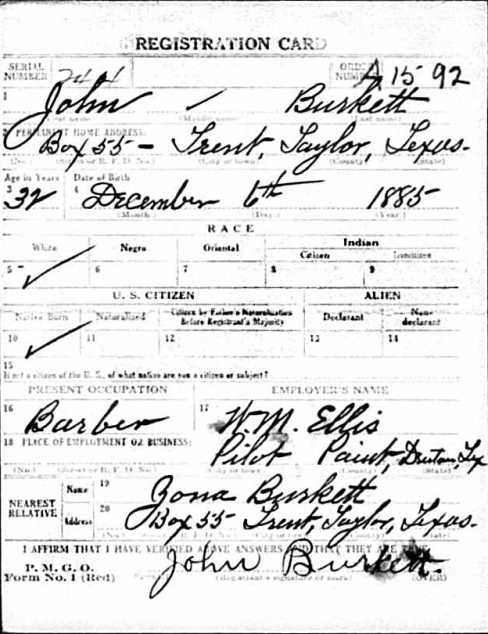 REGISTRATION CARD
SERIAL NUMBER ORDER NUMBER A 1592
1 John / Burkett
(First name) (Middle name) (Last name)
2 PERMANENT HOME ADDRESS:
Box 55 - Trent, Taylor, Texas.
(No.) (Street or R. F. D. No.) (City or town) (County) (State)
Age in Years Date of Birth
3 32 4 December 6th 1885
(Month.) (Day.) (Year.)
RACE
White Negro Oriental Indian
Citizen Noncitizen
5 ✓ 6 7 8 9
U. S. CITIZEN ALIEN
Native Born Naturalized Citizen by Father's Naturalization Before Registrant's Majority Declarant Non-declarant
10 ✓ 11 12 13 14
15
If not a citizen of the U. S., of what nation are you a citizen or subject?
PRESENT OCCUPATION EMPLOYER'S NAME
16 Barber 17 W.M. Ellis
18 PLACE OF EMPLOYMENT OR BUSINESS:
Pilot Point, Denton, Tex
(No.) (Street or R. F. D. No.) (City or town) (County) (State)
NEAREST RELATIVE Name 19 Zona Burkett
Address 20 Box 55 Trent, Taylor, Texas.
(No.) (City or town) (County) (State)
I AFFIRM THAT I HAVE VERIFIED ABOVE ANSWERS AND THAT THEY ARE TRUE
P. M. G. O.
Form No. 1 (Red) John Burkett.
(Registrant's signature or mark) (OVER)